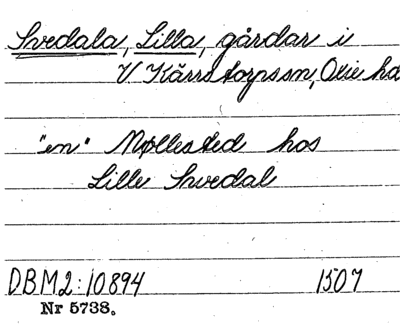 Svedala, Lilla, gårdar i
V Kärrstorpssn, Oxie hd
"en" Møllested hos
Lille Svedal
DBM2:10894 1507
Nr 5738.